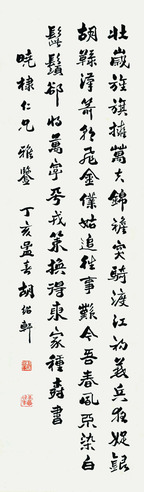 壮歲旌旗擁萬夫錦襜突騎渡江初燕兵夜娖銀
胡䩮漢箭朝飛金僕姑追往事歎今吾春風不染白
髭鬚卻將萬字平戎策換得東家種樹書
曉棣仁兄 雅鑒 丁亥孟春 胡紹軒